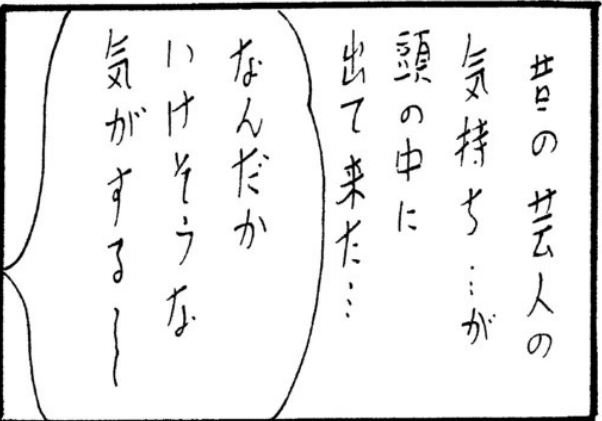 昔の芸人の
気持ち…が
頭の中に
出て来た…
なんだか
いけそうな
気がする〜